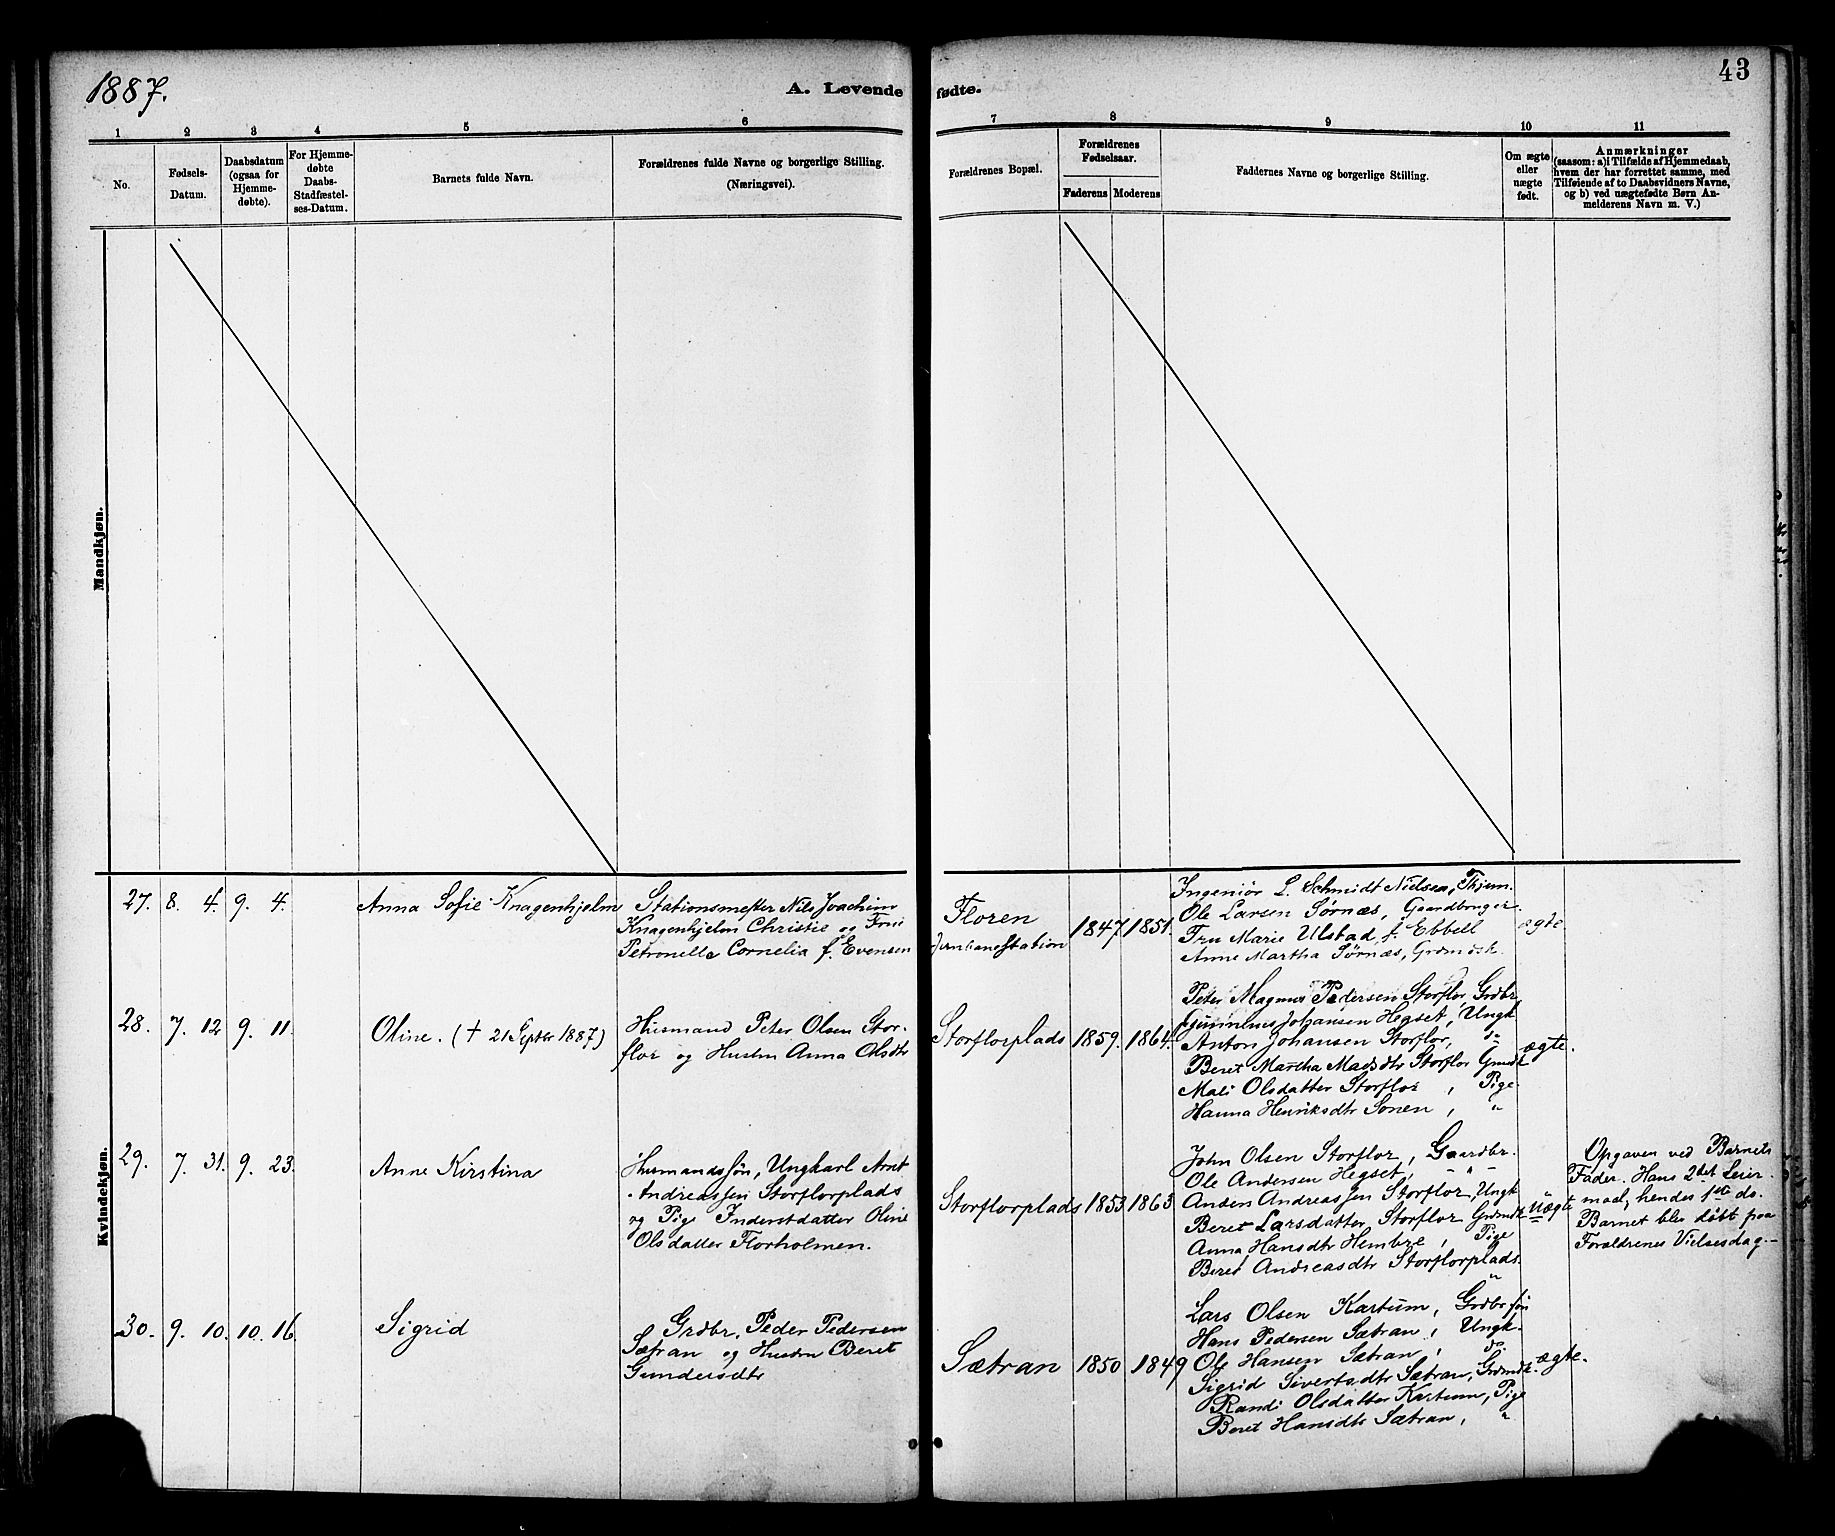 1887.
A. Levende
fødte.
43
1
2
3
4
5
6
7
8
9
10
11
No.
Fødsels-
Datum.
Daabsdatum
(ogsaa for
Hjemme-
døbte).
For Hjemme-
døbte
Daabs-
Stadfæstel-
ses-Datum.
Barnets fulde Navn.
Forældrenes fulde Navne og borgerlige Stilling.
(Næringsvei).
Forældrenes Bopæl.
Forældrenes
Fødselsaar.
Faderens
Moderens
Faddernes Navne og borgerlige Stilling.
Om ægte
eller
uægte
født.
Anmærkninger
(saasom: a) i Tilfælde af Hjemmedaab,
hvem der har forrettet samme, med
Tilføiende af to Daabsvidners Navne,
og b) ved uægtefødte Børn An-
melderens Navn m. V.)
Mandkjøn.
Kvindekjøn.
27. 8. 4. 9. 4.
Anna Sofie Knagenhjelm
Stationsmester Nils Joachim
Knagenhjelm Christie og Frue
Petronelle Cornelia f. Evensen
Floren
Jernbanestation
1847 1851.
Ingeniør L. Schmidt Nielsen, Thjem.
Ole Larsen Sørnæs, Gaardbruger
Fru Marie Ulstad f. Ebbell
Anne Martha Sørnæs, Grdmdsk.
ægte
28. 7. 12 9. 11.
Oline. († 21 Septbr 1887)
Husmand Peter Olsen Stor-
flor og Hustru Anna Olsdtr
Storflorplads
1859. 1864.
Peter Magnus Pedersen Storflor, Grdbr
Johansen Hegset, Ungk
Anton Johansen Storflor, do
Beret Martha Madsdtr Storflor Grmdsk
Mali Olsdatter Storflor, Pige
Hanna Henriksdtr Sonen, "
ægte.
29. 7. 31. 9. 23.
Anne Kirstina
Husmandssøn, Ungkarl Arnt
Andreassen Storflorplads
og Pige Inderstdatter Oline
Olsdatter Florholmen.
Storflorplads
1853 1863
John Olsen Storflor, Gaardbr.
Ole Andersen Hegset, " "
Anders Andreassen Storflor, Ungk
Beret Larsdatter Storflor Grdmdsk
Anna Hansdtr Hembre, Pige
Beret Andreasdtr Storflorplads. "
Uægte
Opgaven ved Barnets
Fader. Hans 2det Leier-
maal, hendes 1ste do.
Barnet blev døbt paa
Forældrenes Vielsesdag.
30. 9. 10. 10. 16.
Sigrid
Grdbr. Peder Pedersen
Sætran og Hustru Beret
Gundersdtr
Sætran
1850 1849
Lars Olsen Kastum, Grdbr.søn
Hans Pedersen Sætran, Ungk.
Ole Hansen Sætran, do
Sigrid Sivertsdtr Sætran, Grdmdsk.
Randi Olsdatter Kastum, Pige
Beret Hansdtr Sætran, "
ægte.